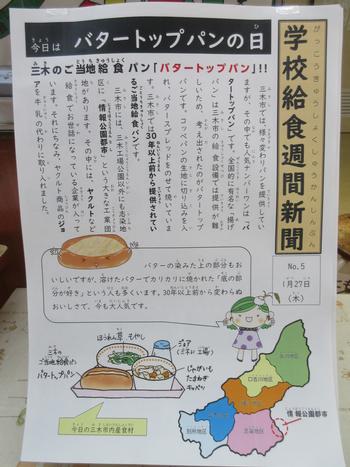 今日は バタートップパンの日
三木のご当地給食パン「バタートップパン」!!
学校給食週間新聞
がっこうきゅうしょくしゅうかんしんぶん
No.5
1月27日
(木)
三木市では、様々変わりパンを提供してい
ますが、その中でも人気ナンバーワンは「バ
タートップパン」です。全国的に有名な「揚げ
パン」は三木市の給食設備では提供が難
しいため、考え出されたのがバタートップ
パンです。コッペパンの生地に切り込みを入
れ、バタースプレッドをのせて焼いていま
す。三木市では30年以上前から提供されてい
るご当地給食パンです。
三木市には、三木工場公園以外にも志染地
区に「情報公園都市」という大きな工業団
地があります。その中には、ヤクルトなど
給食でお世話になっている企業が入って
います。それにちなみ、ヤクルト商品のジョ
アを牛乳の代わりに取り入れました。
バターの染みた上の部分もお
いしいですが、溶けたバターでカリカリに焼かれた「底の部
分が好き」という人も多くいます。30年以上前から変わらぬ
おいしさで、今も大人気です。
ほうれん草 もやし
ジョア
(三木に工場)
三木の
ご当地給食パン
バタートップパン
じゃがいも
たまねぎ
キャベツ
今日の三木市内産食材
吉川地区
口吉川地区
別所地区
志染地区
情報公園都市